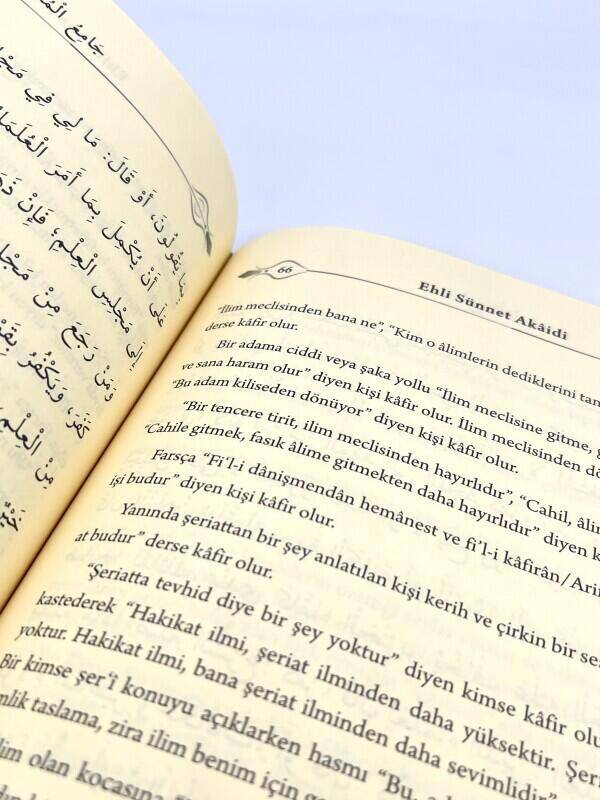 جَامِعُ
بِمَا يَقُولُونَ، أَوْ قَالَ: مَا لِي فِي
عَلَى أَنْ يُكْمِلَ بِمَا أَمَرَ الْعُلَمَاءُ
إِلَى مَجْلِسِ الْعِلْمِ؛ فَإِنْ
وَمَنْ رَجَعَ مِنْ
كَفَرَ، وَيَكْفُرُ
مِنَ الْعِلْمِ
خَيْرٌ
66
Ehli Sünnet Akâidi
"İlim meclisinden bana ne", "Kim o âlimlerin dediklerini
derse kâfir olur.
Bir adama ciddi veya şaka yollu "İlim meclisine gitme,
ve sana haram olur" diyen kişi kâfir olur. İlim meclisinden
"Bu adam kiliseden dönüyor" diyen kişi kâfir olur.
"Bir tencere tirit, ilim meclisinden hayırlıdır", "Cahil,
"Cahile gitmek, fasık âlime gitmekten daha hayırlıdır" diyen
Farsça "Fi'l-i dânişmendân hemânest ve fi'l-i kâfirân/
işi budur" diyen kişi kâfir olur.
Yanında şeriattan bir şey anlatılan kişi kerih ve çirkin bir
at budur" derse kâfir olur.
"Şeriatta tevhid diye bir şey yoktur" diyen kimse kâfir
kastederek "Hakikat ilmi, şeriat ilminden daha yüksektir.
yoktur. Hakikat ilmi, bana şeriat ilminden daha sevimlidir"
Bir kimse şer'î konuyu açıklarken hasmı "Bu,
taslama, zira ilim benim için
olan kocasına